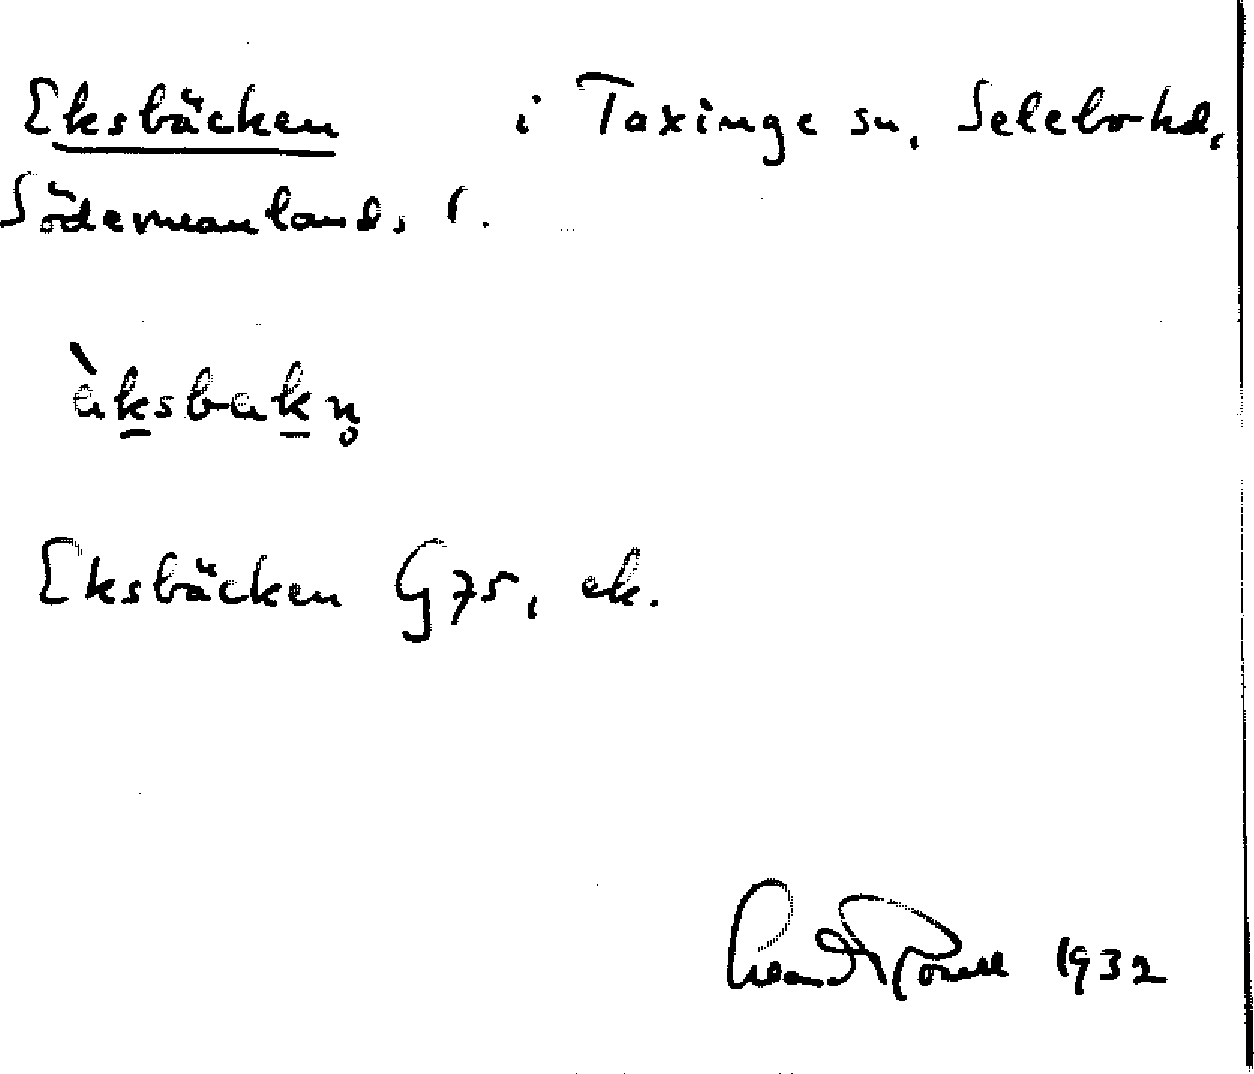 Eksbäcken i Taxinge sn, Selebo hd,
Södermanlands l.
èksbekn̥
Eksbäcken G75, ek.
1932